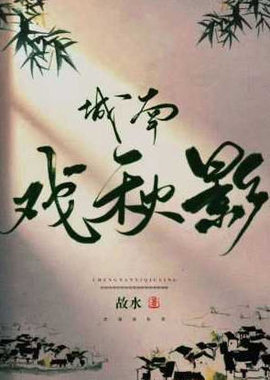 城南
戏秋影
故水 著